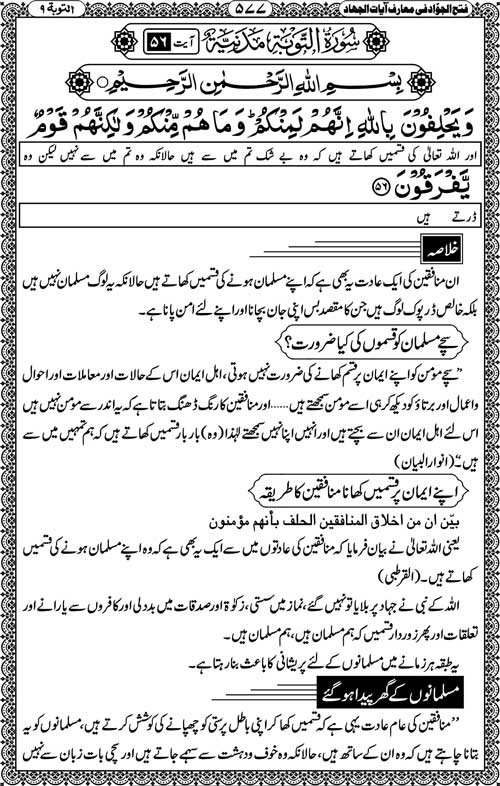 فتح الجوّاد فی معارف آیات الجهاد
۵۷۷
التوبة ۹
سُورَةُ التَّوْبَةِ مَدَنِيَّةٌ آیت ۵۶
بِسْمِ اللهِ الرَّحْمٰنِ الرَّحِيْمِ
وَيَحْلِفُوْنَ بِاللّٰهِ اِنَّهُمْ لَمِنْكُمْ وَمَا هُمْ مِّنْكُمْ وَلٰكِنَّهُمْ قَوْمٌ
اور اللہ تعالیٰ کی قسمیں کھاتے ہیں کہ وہ بے شک تم میں سے ہیں حالانکہ وہ تم میں سے نہیں لیکن وہ
يَّفْرَقُوْنَ ۵۶
ڈرتے ہیں
خلاصہ
ان منافقین کی ایک عادت یہ بھی ہے کہ اپنے مسلمان ہونے کی قسمیں کھاتے ہیں حالانکہ یہ لوگ مسلمان نہیں ہیں
بلکہ خالص ڈرپوک لوگ ہیں جن کا مقصد بس اپنی جان بچانا اور اپنے لئے امن پانا ہے۔
سچے مسلمان کو قسموں کی کیا ضرورت؟
”سچے مومن کو اپنے ایمان پر قسم کھانے کی ضرورت نہیں ہوتی، اہل ایمان اس کے حالات اور معاملات اور احوال
و اعمال اور برتاؤ کو دیکھ کر ہی اسے مومن سمجھتے ہیں...... اور منافقین کا رنگ ڈھنگ بتاتا ہے کہ یہ اندر سے مومن نہیں ہیں
اس لئے اہل ایمان ان سے بچتے ہیں اور انہیں اپنا نہیں سمجھتے لہٰذا (وہ) بار بار قسمیں کھاتے ہیں کہ ہم تمہیں میں سے
ہیں۔“ (انوار البیان)
اپنے ایمان پر قسمیں کھانا منافقین کا طریقہ
بيّن ان من اخلاق المنافقين الحلف بأنهم مؤمنون
یعنی اللہ تعالیٰ نے بیان فرمایا کہ منافقین کی عادتوں میں سے ایک یہ بھی ہے کہ وہ اپنے مسلمان ہونے کی قسمیں
کھاتے ہیں۔ (القرطبی)
اللہ کے نبی نے جہاد پر بلایا تو نہیں گئے، نماز میں سستی، زکوٰۃ اور صدقات میں بددلی اور کافروں سے یارانے اور
تعلقات اور پھر زوردار قسمیں کہ ہم مسلمان ہیں، ہم مسلمان ہیں۔
یہ طبقہ ہر زمانے میں مسلمانوں کے لئے پریشانی کا باعث بنا رہتا ہے۔
مسلمانوں کے گھر پیدا ہو گئے
”منافقین کی عام عادت یہی ہے کہ قسمیں کھا کر اپنی باطل پرستی کو چھپانے کی کوشش کرتے ہیں، مسلمانوں کو یہ
بتانا چاہتے ہیں کہ وہ ان کے ساتھ ہیں، حالانکہ وہ خوف و دہشت سے سہمے جاتے ہیں اور سچی بات زبان سے نہیں